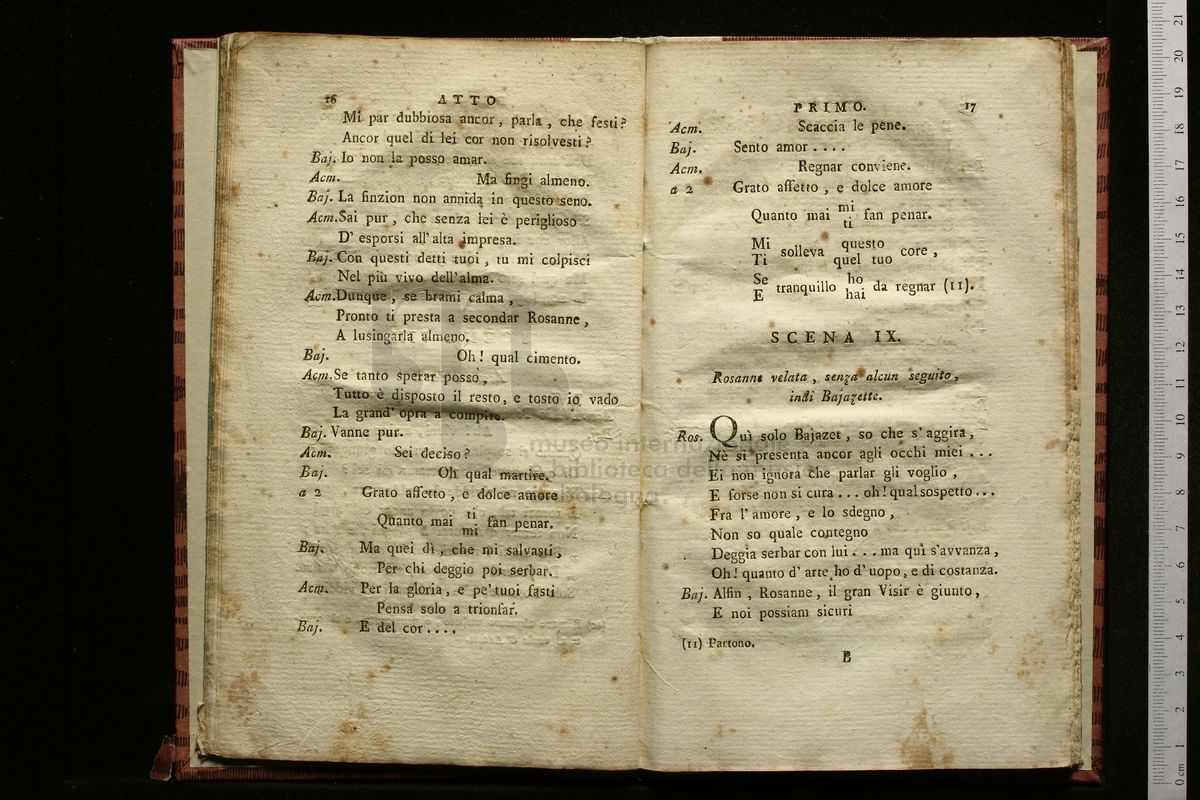 16 ATTO
Mi par dubbiosa ancor, parla, che festi?
Ancor quel di lei cor non risolvesti?
Baj. Io non la posso amar.
Acm. Ma fingi almeno.
Baj. La finzion non annida in questo seno.
Acm. Sai pur, che senza lei è periglioso
D' esporsi all' alta impresa.
Baj. Con questi detti tuoi, tu mi colpisci
Nel più vivo dell'alma.
Acm. Dunque, se brami calma,
Pronto ti presta a secondar Rosanne,
A lusingarla almeno.
Baj. Oh! qual cimento.
Acm. Se tanto sperar posso,
Tutto è disposto il resto, e tosto io vado
La grand' opra a compire.
Baj. Vanne pur.
Acm. Sei deciso?
Baj. Oh qual martire.
a 2 Grato affetto, e dolce amore
Quanto mai ti fan penar.
mi
Baj. Ma quei dì, che mi salvasti,
Per chi deggio poi serbar.
Acm. Per la gloria, e pe' tuoi fasti
Pensa solo a trionfar.
Baj. E del cor....
PRIMO. 17
Acm. Scaccia le pene.
Baj. Sento amor....
Acm. Regnar conviene.
a 2 Grato affetto, e dolce amore
Quanto mai mi fan penar.
ti
Mi solleva questo core,
Ti quel tuo
Se tranquillo ho da regnar (11).
E hai
SCENA IX.
Rosanne velata, senza alcun seguito,
indi Bajazette.
Ros. Quì solo Bajazet, so che s' aggira,
Nè si presenta ancor agli occhi miei...
Ei non ignora che parlar gli voglio,
E forse non si cura... oh! qual sospetto...
Fra l' amore, e lo sdegno,
Non so quale contegno
Deggia serbar con lui... ma quì s'avvanza,
Oh! quanto d' arte ho d' uopo, e di costanza.
Baj. Alfin, Rosanne, il gran Visir è giunto,
E noi possiam sicuri
(11) Partono.
B
museo internazionale
e biblioteca della
bologna
0 cm 1 2 3 4 5 6 7 8 9 10 11 12 13 14 15 16 17 18 19 20 21